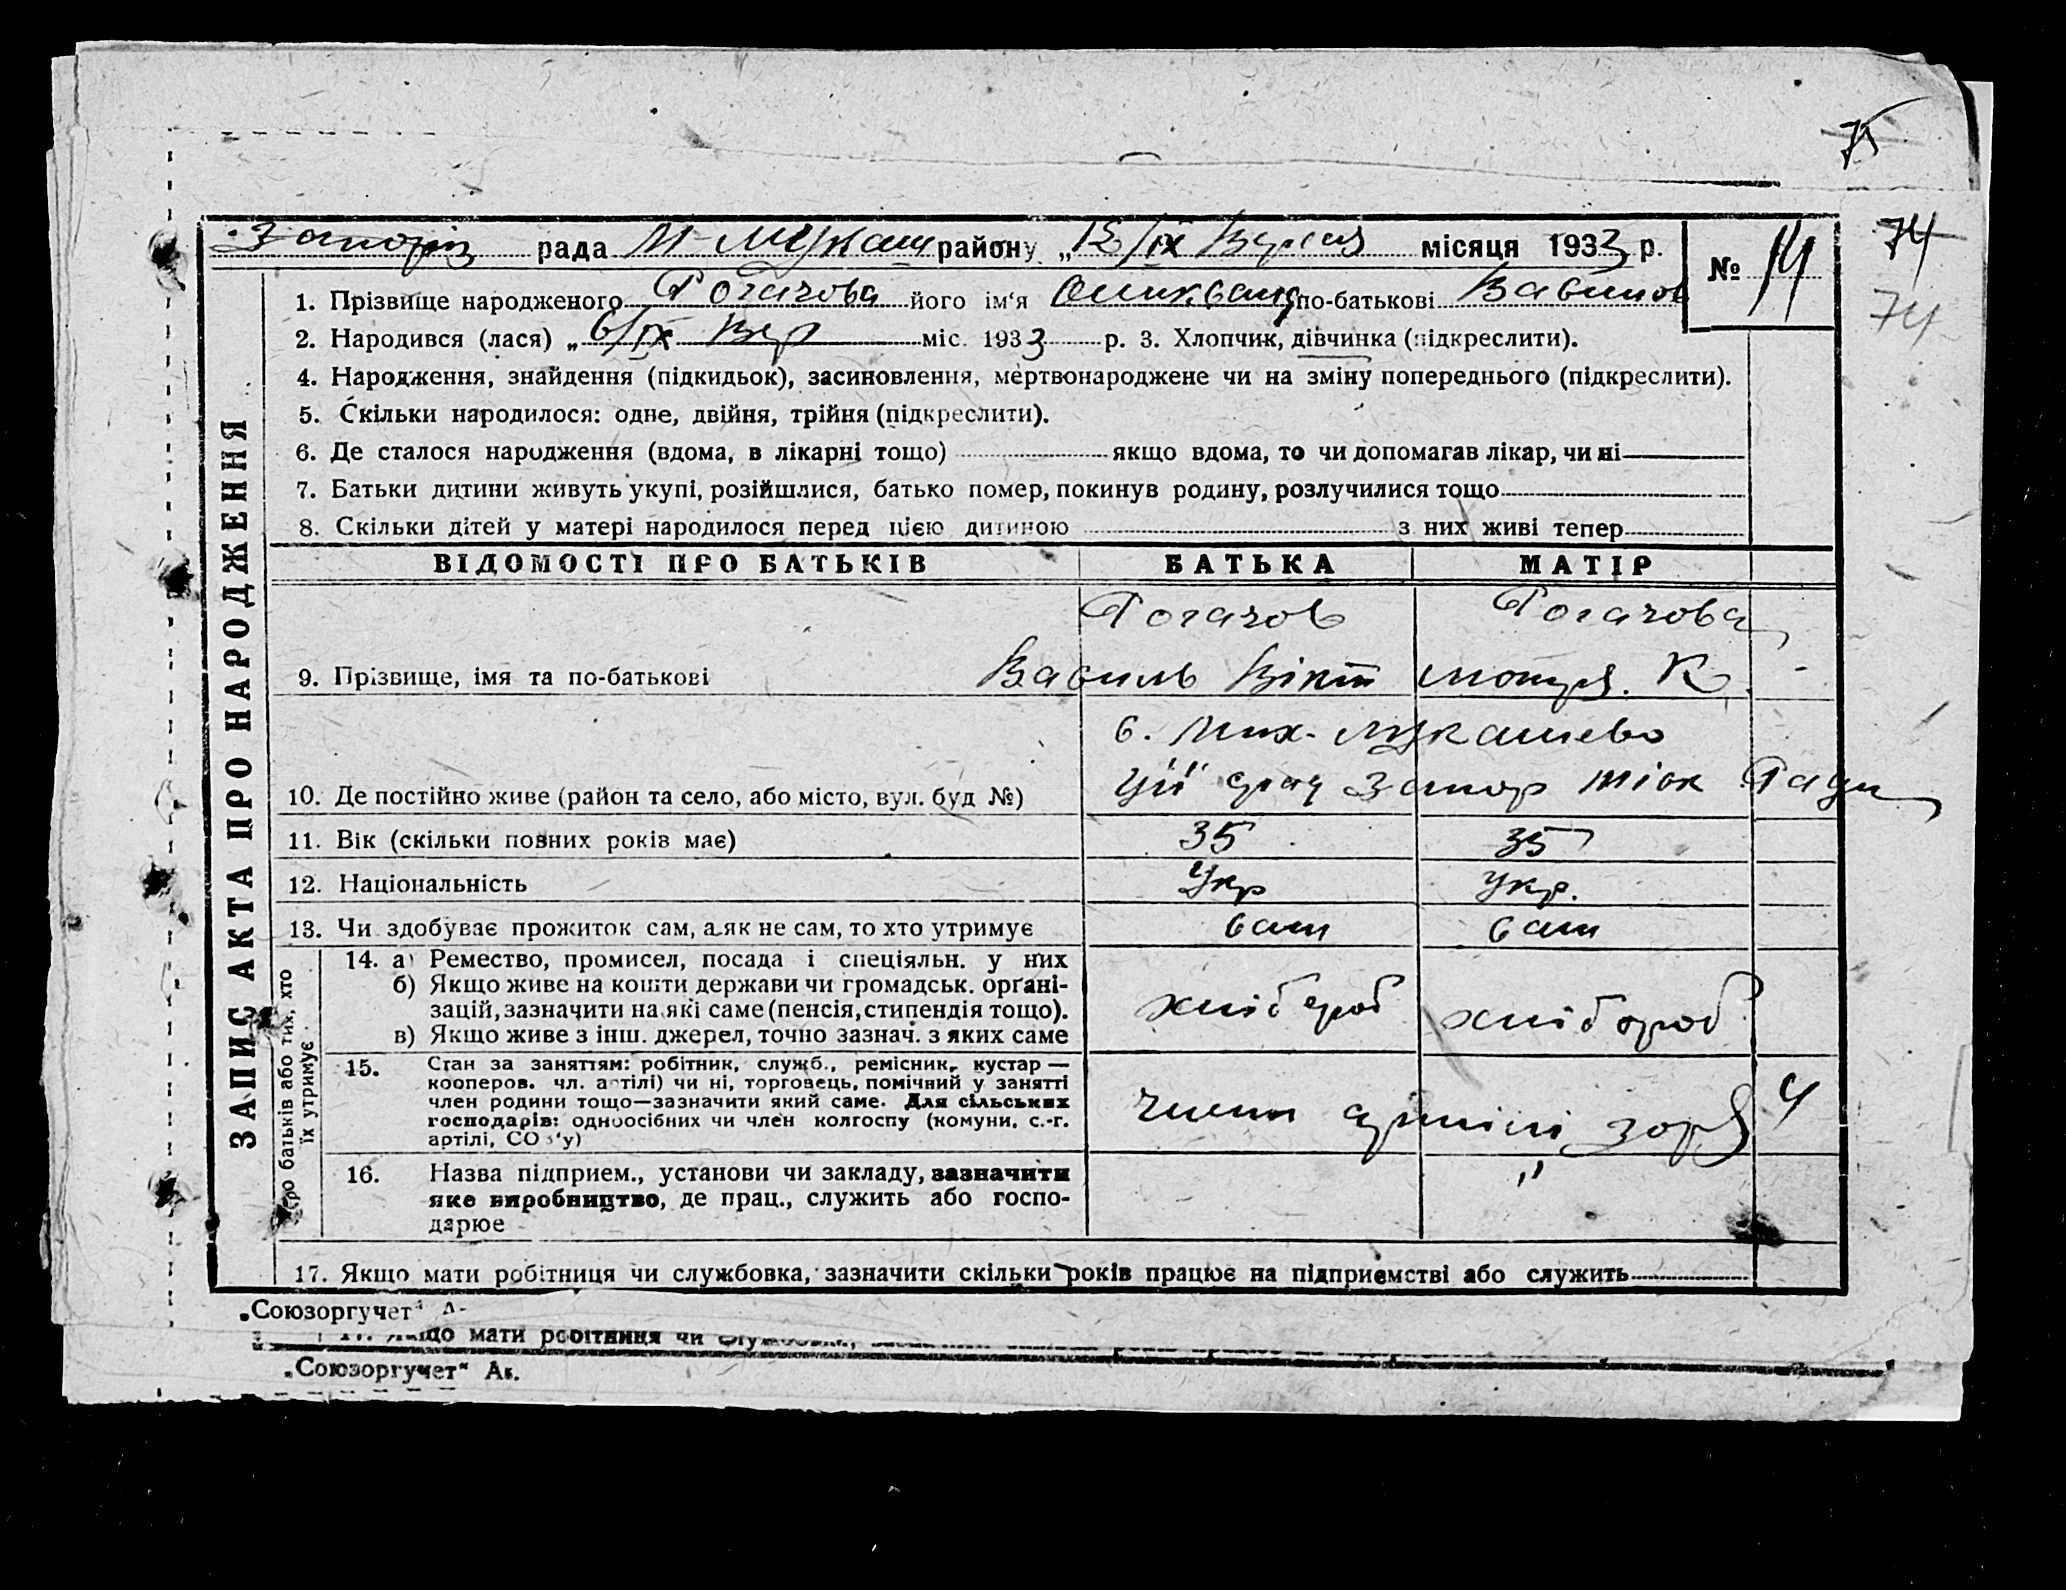 75
Запоріз рада М-Лукаш району „12/ІХ Верес місяця 1933 р.
№ 14
74
74
1. Прізвище народженого Рогачова його ім‘я по-батькові Василов
2. Народився (лася) „6/ІХ Вер міс. 1933 р. 3. Хлопчик, дівчинка (підкреслити).
4. Народження, знайдення (підкидьок), засиновлення, мертвонароджене чи на зміну попереднього (підкреслити).
5. Скільки народилося: одне, двійня, трійня (підкреслити).
6. Де сталося народження (вдома, в лікарні тощо) якщо вдома, то чи допомагав лікар, чи ні
7. Батьки дитини живуть укупі, розійшлися, батько помер, покинув родину, розлучилися тощо
8. Скільки дітей у матері народилося перед цією дитиною з них живі тепер
ЗАПИС АКТА ПРО НАРОДЖЕННЯ
ВІДОМОСТІ ПРО БАТЬКІВ БАТЬКА МАТІР
Рогачов Рогачова
9. Прізвище, імя та по-батькові Василь Вікт Мотря. К.
с. Мих-Лукашево
10. Де постійно живе (район та село, або місто, вул. буд №) ції Запор Міск Ради
11. Вік (скільки повних років має) 35 35
12. Національність Укр Укр.
13. Чи здобуває прожиток сам, а як не сам, то хто утримує сам сам
Про батьків або тих, хто їх утримує
14. а) Ремество, промисел, посада і спеціяльн. у них
б) Якщо живе на кошти держави чи громадськ. орґані-
зацій, зазначити на які саме (пенсія, стипендія тощо).
в) Якщо живе з інш. джерел, точно зазнач. з яких саме
хлібороб хлібороб
15. Стан за заняттям: робітник, служб., ремісник, кустар —
кооперов. чл. артілі) чи ні, торговець, помічний у занятті
член родини тощо—зазначити який саме. Для сільських
господарів: одноосібних чи член колгоспу (комуни, с.-г.
артілі, СОЗ‘у)
член артілі зоря 4
16. Назва підприєм., установи чи закладу, зазначити
яке виробництво, де прац., служить або госпо-
дарює
"
17. Якщо мати робітниця чи службовка, зазначити скільки років працює на підприємстві або служить
„Союзоргучет“ А-
17. Якщо мати робітниця чи
„Союзоргучет“ Ак.